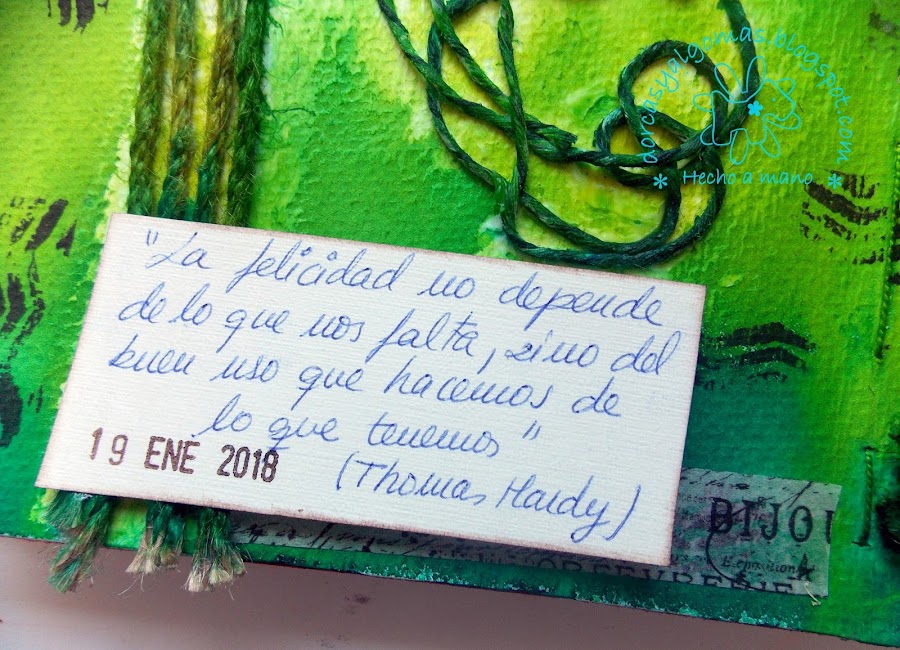 dorcasyalgomas.blogspot.com
* Hecho a mano *
"La felicidad no depende
de lo que nos falta, sino del
buen uso que hacemos de
lo que tenemos"
19 ENE 2018
(Thomas Hardy)
BIJOU
ORFEVRERIE